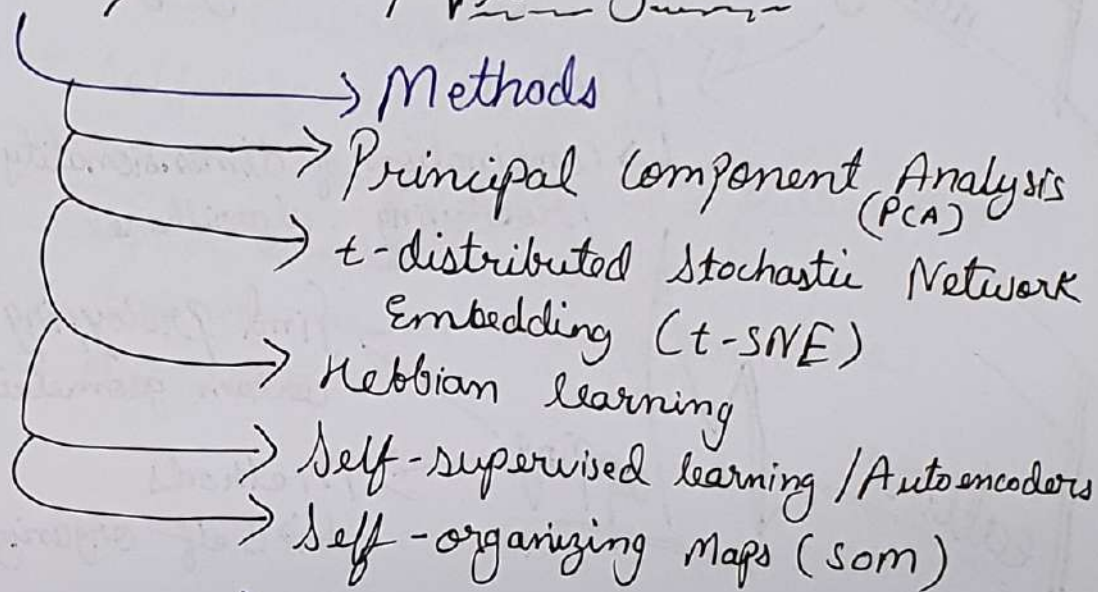 Methods
Principal Component Analysis
(PCA)
t-distributed Stochastic Network
Embedding (t-SNE)
Hebbian learning
Self-supervised learning / Autoencoders
Self-organizing Maps (SOM)